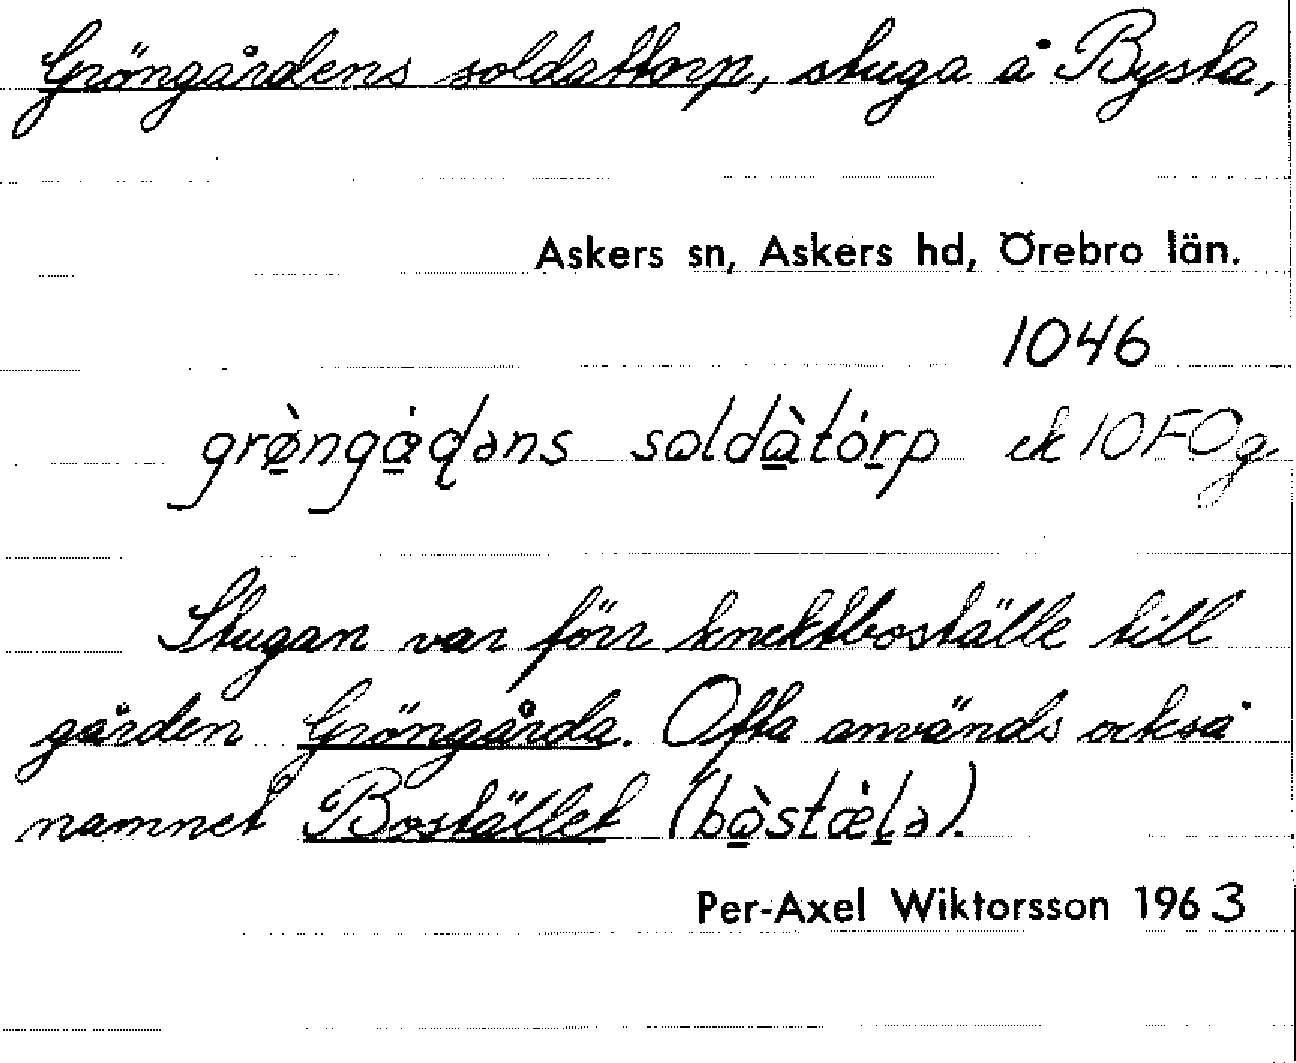 Gröngårdens soldattorp, stuga å Bysta,
Askers sn, Askers hd, Örebro län.
1046
grø̀ngádəns soldàtórp ek 10F0g
Stugan var förr knektboställe till
gården Gröngårda. Ofta används också
namnet Bostället (bòstǽlə).
Per-Axel Wiktorsson 1963